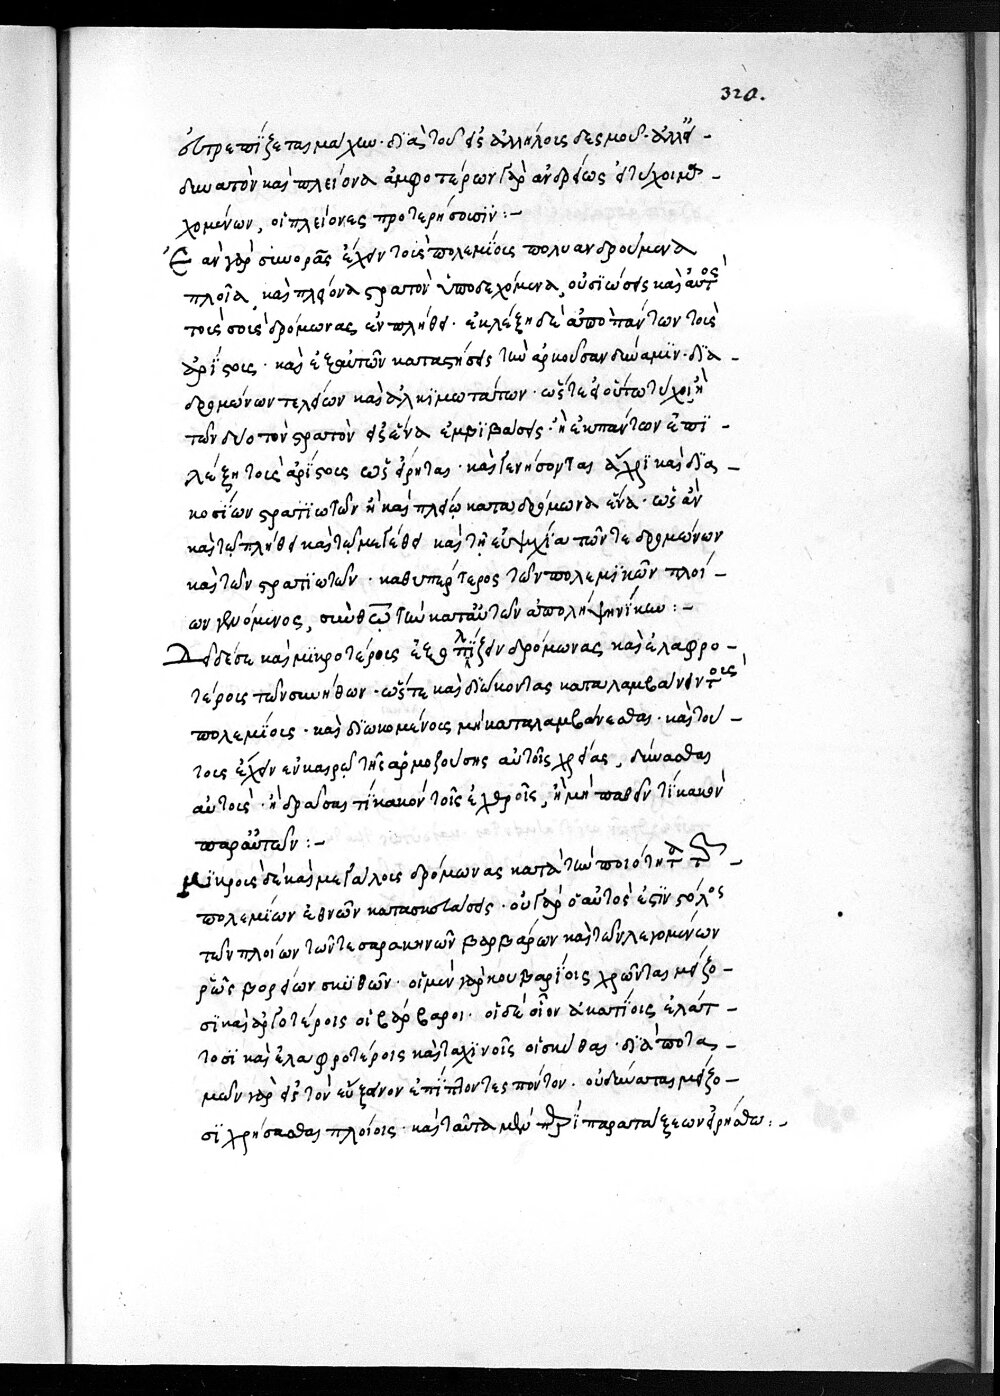 320.
εὐτρεπίζεται μάχην· διὰ τοῦ εἰς ἀλλήλους δεσμοῦ· ἀλλ' εἰ
δυνατὸν καὶ πλείονα ἀμφοτέρων γὰρ ἀνδρείως εἰ τύχοι μα-
χομένων, οἱ πλείονες προτερήσουσιν :-
Ἐὰν γὰρ συνορᾷς ἔχειν τοὺς πολεμίους πολυανδρούμενα
πλοῖα, καὶ πλείονα στρατὸν ὑποδεχόμενα, οὐσιώσεις καὶ αὐτὸς
τοὺς σοὺς δρόμωνας ἐν πλήθει· ἐκλέξῃ δὲ ἀπὸ πάντων τοὺς
ἀρίστους· καὶ ἐξ αὐτῶν καταστήσεις τὴν ἀρκοῦσαν δύναμιν· διὰ
δρομώνων τελείων καὶ ἀλκιμωτάτων· ὥστε εἰ οὕτω τύχοι, ἢ
τῶν δύο τὸν στρατὸν εἰς ἕνα ἐμβιβάσεις· ἢ ἐκ πάντων ἐπι-
λέξῃ τοὺς ἀρίστους ὡς εἴρηται· καὶ γενήσονται ἄχρι καὶ δια-
κοσίων στρατιωτῶν ἢ καὶ πλείω κατὰ δρόμωνα ἕνα· ὡς ἂν
καὶ τῷ πλήθει καὶ τῷ μεγέθει καὶ τῇ εὐψυχίᾳ τῶν τε δρομώνων
καὶ τῶν στρατιωτῶν· καθυπέρτερος τῶν πολεμικῶν πλοί-
ων γενόμενος, σὺν θεῷ τὴν κατ' αὐτῶν ἀπολήψῃ νίκην :-
Δεῖ δέ σε καὶ μικροτέρους ἐξοπλίζειν δρόμωνας καὶ ἐλαφρο-
τέρους τῶν συνήθων· ὥστε καὶ διώκοντας καταλαμβάνειν τοὺς
πολεμίους· καὶ διωκομένους μὴ καταλαμβάνεσθαι· καὶ τού-
τους ἔχειν εὐκαίρῳ τῆς ἁρμοζούσης αὐτοῖς χρείας, δύνασθαι
αὐτοὺς· ἢ δρᾶσαί τι κακόν τοῖς ἐχθροῖς, ἢ μὴ παθεῖν τι κακὸν
παρ' αὐτῶν :-
Μικροὺς δὲ καὶ μεγάλους δρόμωνας κατὰ τὴν ποιότητα τῶν
πολεμίων ἐθνῶν κατασκευάσεις· οὐ γὰρ ὁ αὐτὸς ἐστὶν στόλος
τῶν πλοίων τῶν τε σαρακηνῶν βαρβάρων καὶ τῶν λεγομένων
ῥῶς βορείων σκυθῶν· οἱ μὲν γὰρ κουμβαρίοις χρῶνται μείζο-
σι καὶ ἀργοτέροις οἱ βάρβαροι· οἱ δὲ οἷον ἀκατίοις ἐλάτ-
τοσι καὶ ἐλαφροτέροις καὶ ταχινοῖς οἱ σκύθαι· διὰ ποτα-
μῶν γὰρ εἰς τὸν εὔξεινον ἐπιπίπτοντες πόντον· οὐ δύνανται μείζο-
σι χρήσασθαι πλοίοις· καὶ ταῦτα μὲν περὶ παρατάξεων εἰρήσθω :-